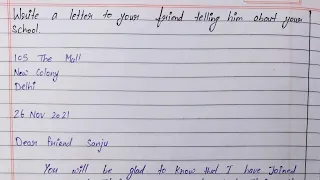 Write a letter to your friend telling him about your
School.
105 The Mall
New Colony
Delhi
26 Nov 2021
Dear friend Sanju
You will be glad to know that I have Joined